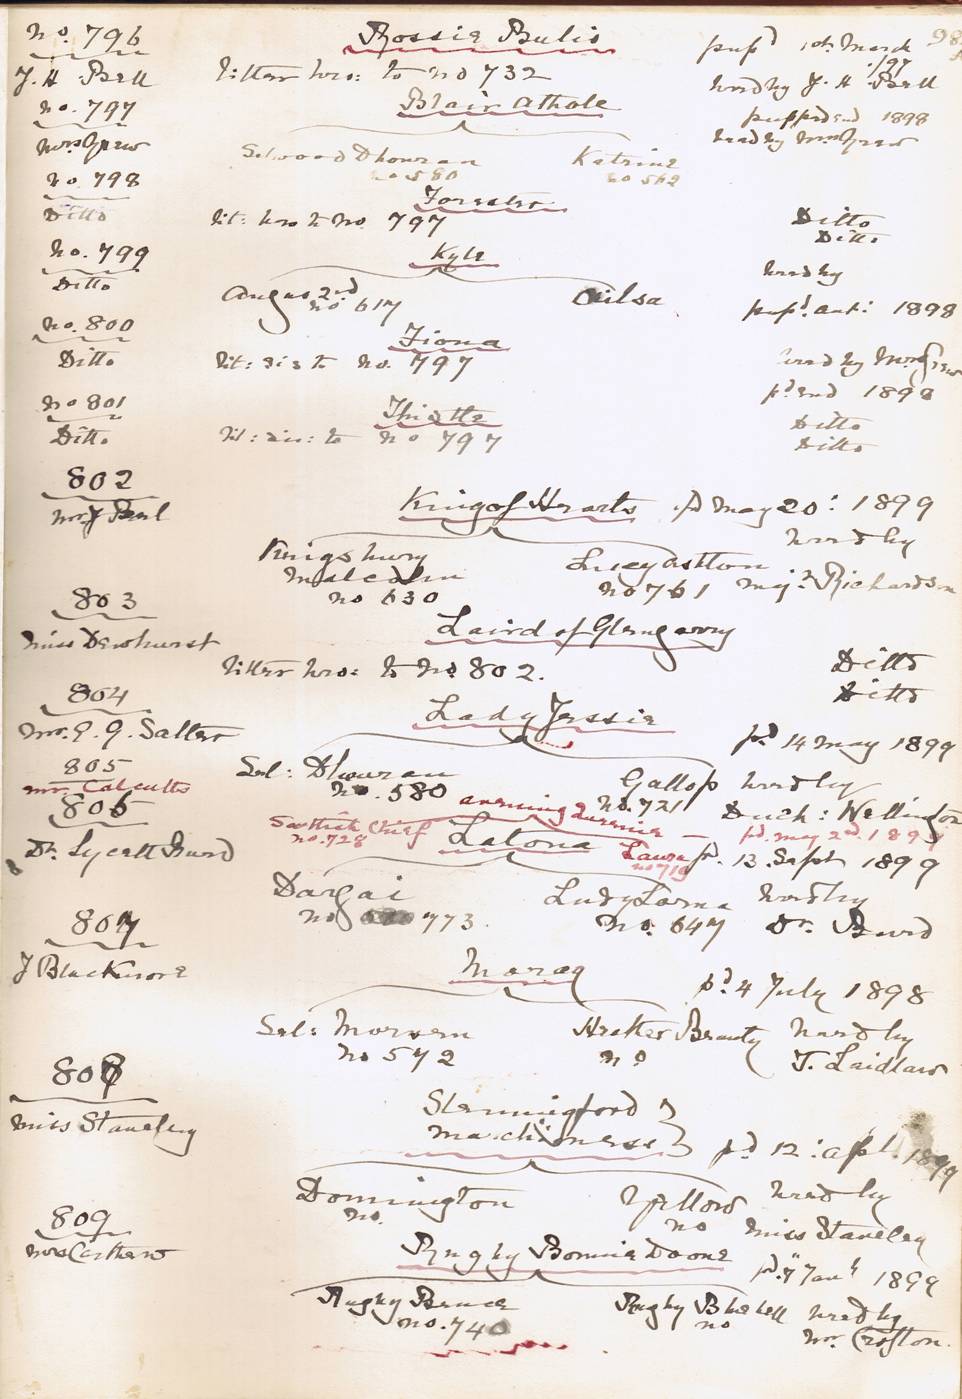 No. 796 Rossie Bulis pupd 10th March /97 98
J. H. Bell Litter bro: to no 732 bred by J. H. Bell
No. 797 Blair Athole pupped 2nd 1898
Mrs Grew bred by Mrs Grew
Selwood Dhouran Katrine
no 580 no 562
No. 798 Forester
Ditto Lit: bro to No. 797 Ditto
Ditto
No. 799 Kyle bred by
Ditto
Angus 2nd Ailsa pupd. 1898
no 617
No. 800 Fiona
Ditto Lit: sis to No. 797 bred by Mrs Grew
pd 2nd 1898
No 801 Thistle Ditto
Ditto Lit: sis: to No 797 Ditto
802 King of Hearts pd May 20: 1899
bred by
Kingsbury Lucy Ashton
Malcolm no 761 Majr Richardson
no 630
803 Laird of Glengarry
Miss Dewhurst Litter bro: to No 802. Ditto
Ditto
804 Lady Jessie
Mr. E. G. Salter pd 14 May 1899
805 Sel: Dhouran Gallop bred by
Mr. Calcutts No. 580 No. 721 Duch: Wellington
Scottish Chief Laura pd. May 2nd. 1899
no. 728 no 719
806 Latona pd. 13 Sept 1899
Dr. Lycett Burd
Dargai Lady Lorna bred by
no 773. No. 647 Dr. Burd
807 Morag pd. 4 July 1898
J Blackmore
Sel: Morvern Heather Beauty bred by
No 572 no T. Laidlaw
808 Slenningford
Miss Staveley Marchioness pd 12: Apl. 1899
Donnington Yellow bred by
no. no Miss Staveley
809 Rugby Bonnie Doone
Mrs Carthew pd. 7 Jany 1899
Rugby Bruce Rugby Bluebell bred by
no. 740 no Mr. Crofton.